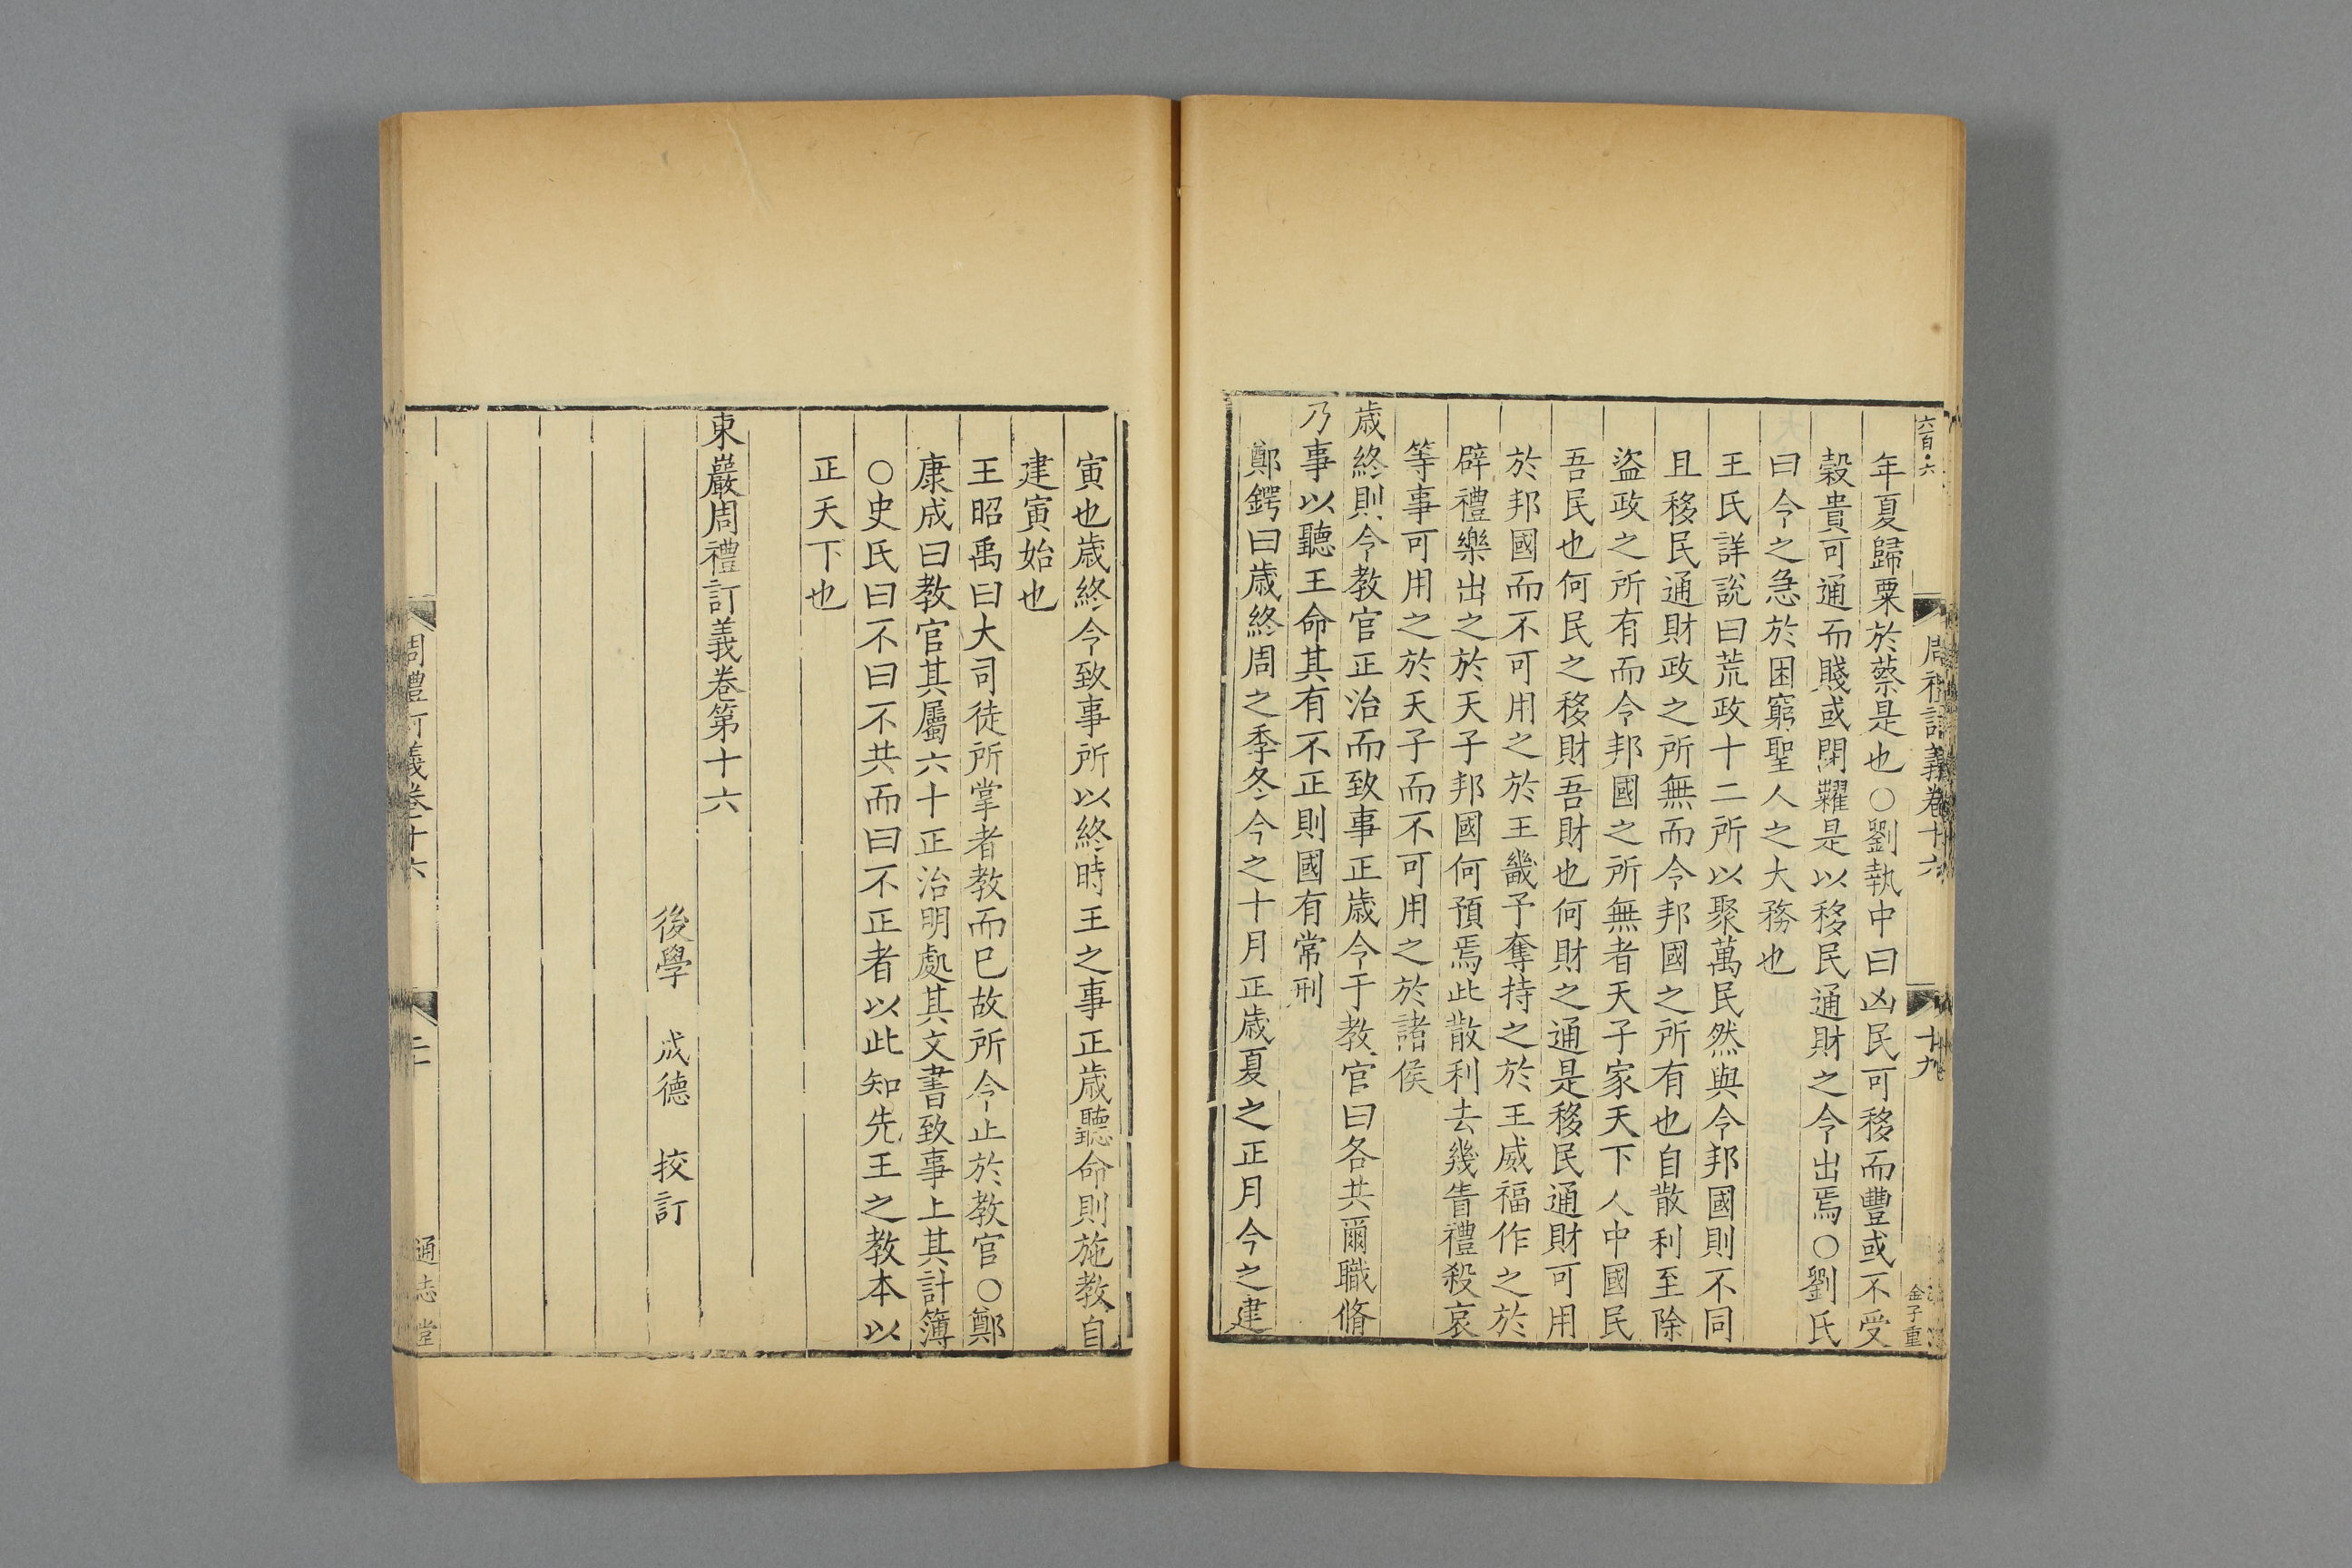 六百六
周禮訂義卷十六
十九
金子重
年夏歸粟於蔡是也○劉執中曰凶民可移而豐或不受
穀貴可通而賤或閉糴是以移民通財之令出焉○劉氏
曰令之急於困窮聖人之大務也
王氏詳說曰荒政十二所以聚萬民然與令邦國則不同
且移民通財政之所無而令邦國之所有也自散利至除
盜政之所有而令邦國之所無者天子家天下人中國民
吾民也何民之移財吾財也何財之通是移民通財可用
於邦國而不可用之於王畿予奪持之於王威福作之於
辟禮樂出之於天子邦國何預焉此散利去幾眚禮殺哀
等事可用之於天子而不可用之於諸侯
歲終則令教官正治而致事正歲令于教官曰各共爾職脩
乃事以聽王命其有不正則國有常刑
鄭鍔曰歲終周之季冬今之十月正歲夏之正月今之建
寅也歲終令致事所以終時王之事正歲聽命則施教自
建寅始也
王昭禹曰大司徒所掌者教而已故所令止於教官○鄭
康成曰教官其屬六十正治明處其文書致事上其計簿
○史氏曰不曰不共而曰不正者以此知先王之教本以
正天下也
東巖周禮訂義卷第十六
後學 成德 挍訂
周禮訂義卷十六
通志堂